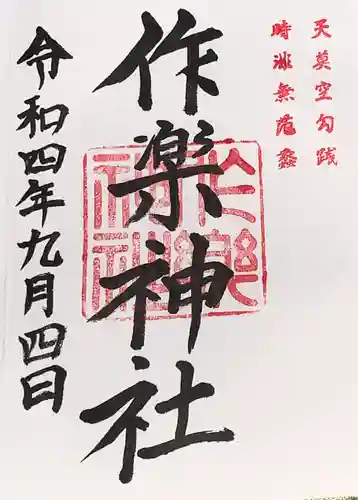 天莫空勾践
時非無范蠡
作楽神社
令和四年九月四日
作樂神社